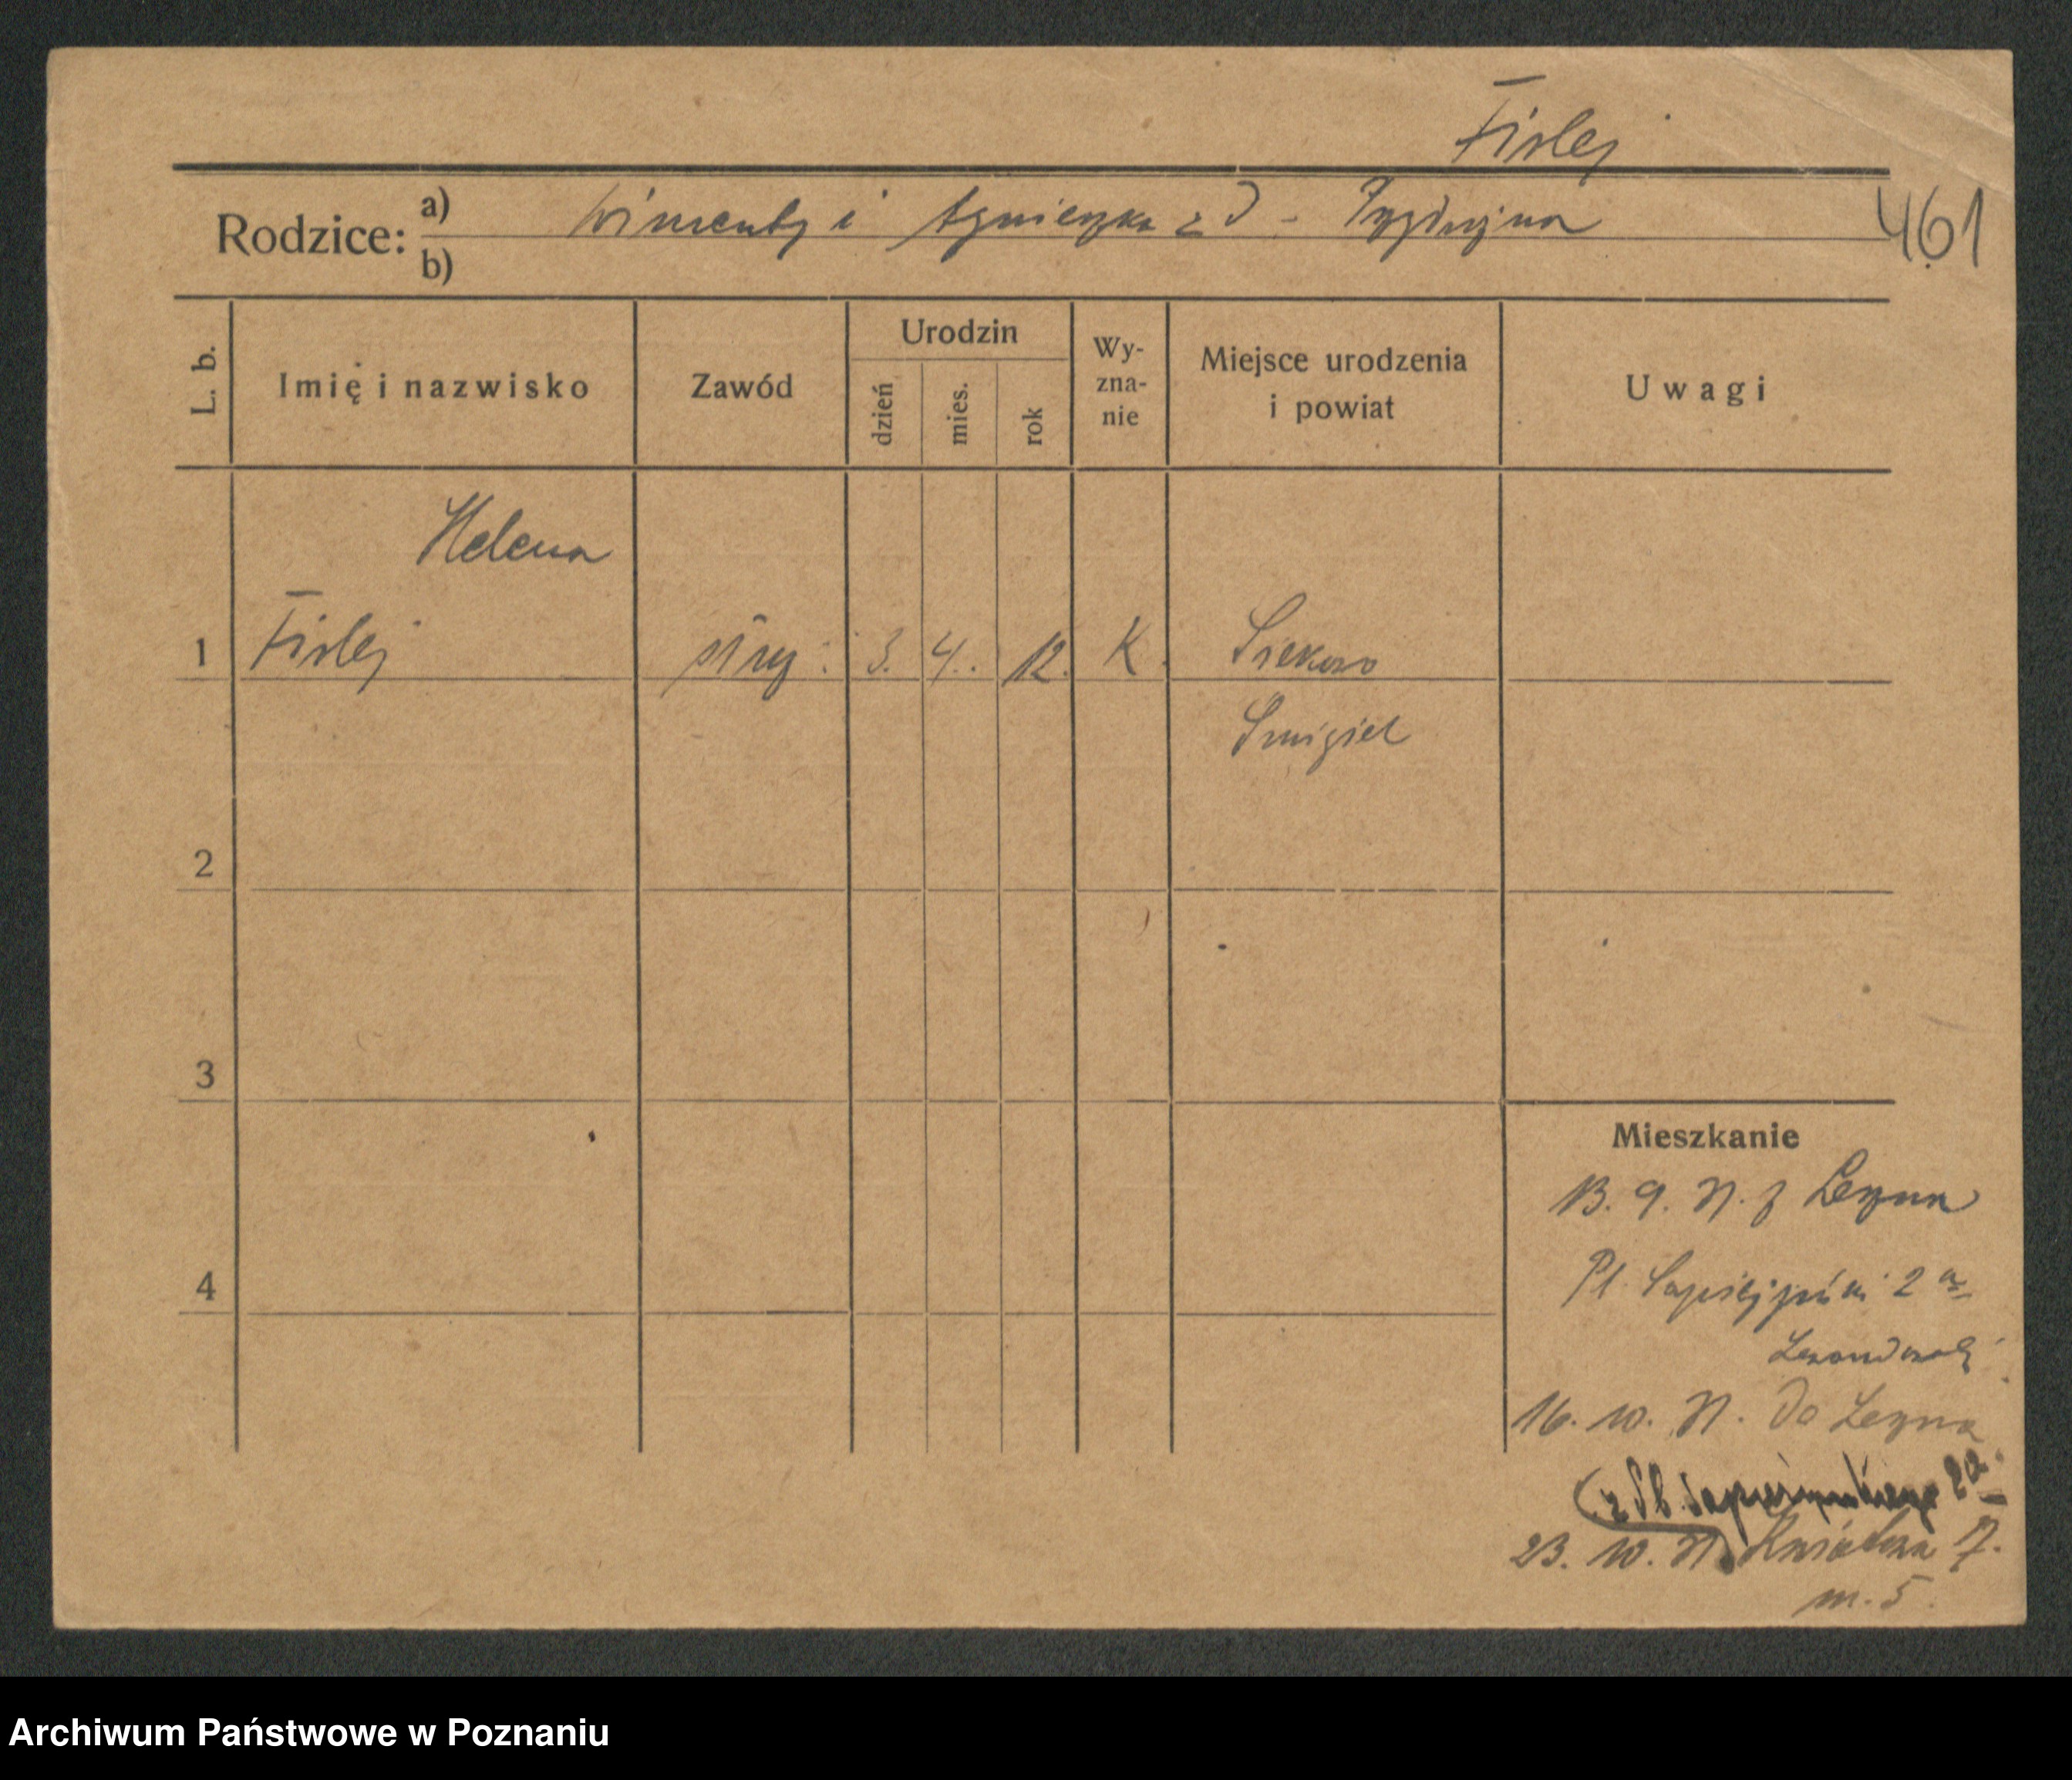 Firlej
Rodzice: a) Wincenty i Agnieszka z d -
461
b)
L. b.
Imię i nazwisko
Zawód
Urodzin
dzień
mies.
rok
Wy-
zna-
nie
Miejsce urodzenia
i powiat
Uwagi
Helena
1 Firlej 3. 4. 12. K.
Śmigiel
2
3
4
Mieszkanie
13. 9. 31. z Leszna
Pl. 2 a
16. 10. 31. do Leszna
(z Pl. Sapieżyńskiego 2a.
23. 10. 31. Kwiatowa 7.
m. 5.
Archiwum Państwowe w Poznaniu